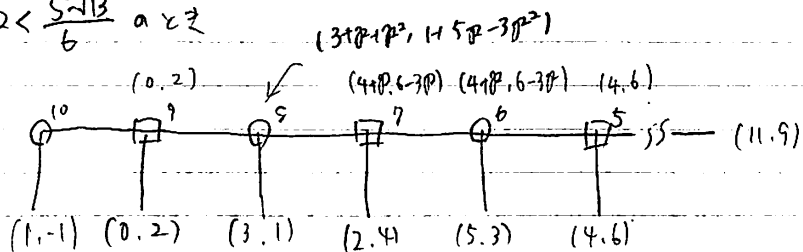 2 < \frac{5-√13}{6} のとき
(3+p+p², 1+5p-3p²)
(0.2) (4+p.6-3p) (4+p,6-3p) (4,6)
10 9 8 7 6 5 (11.9)
(1,-1) (0.2) (3.1) (2.4) (5.3) (4.6)